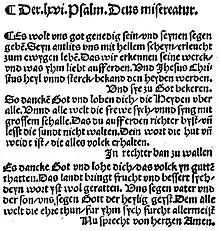 C Der. lxvi. Psalm. Deus misereatur.
CEs wolt uns got genedig sein/und seynen segen
geben. Seyn antlits uns mit hellem scheyn/erleucht
zum ewygen leben. Das wir erkennen seine werck/
und was yhm liebt auff erden. Und Jhesus Chri
stus heyl unnd sterck/bekand den heyden werden.
Und sye zu Got bekeren.
So dancke Got und loben dich/die Heyden uber
alle. Unnd alle welt die frewe sych/unnd syng mit
grossem schalle. Das du auff erden richter byst/uñ
lesst die sundt nicht walten. Dein wort die hut uñ
weide ist/die alles volck erhalten.
In rechter ban zu wallen
Es dancke Got und lobe dich/das volck yn gutẽ
thatten. Das landt bringt frucht und bessert sych/
deyn wort yst wol geratten. Uns segen vater und
der son/uns segen Got der heylig geyst. Dem alle
welt die ehre thun/fur yhm sych furcht allermeist
Nu sprecht von hertzen Amen.